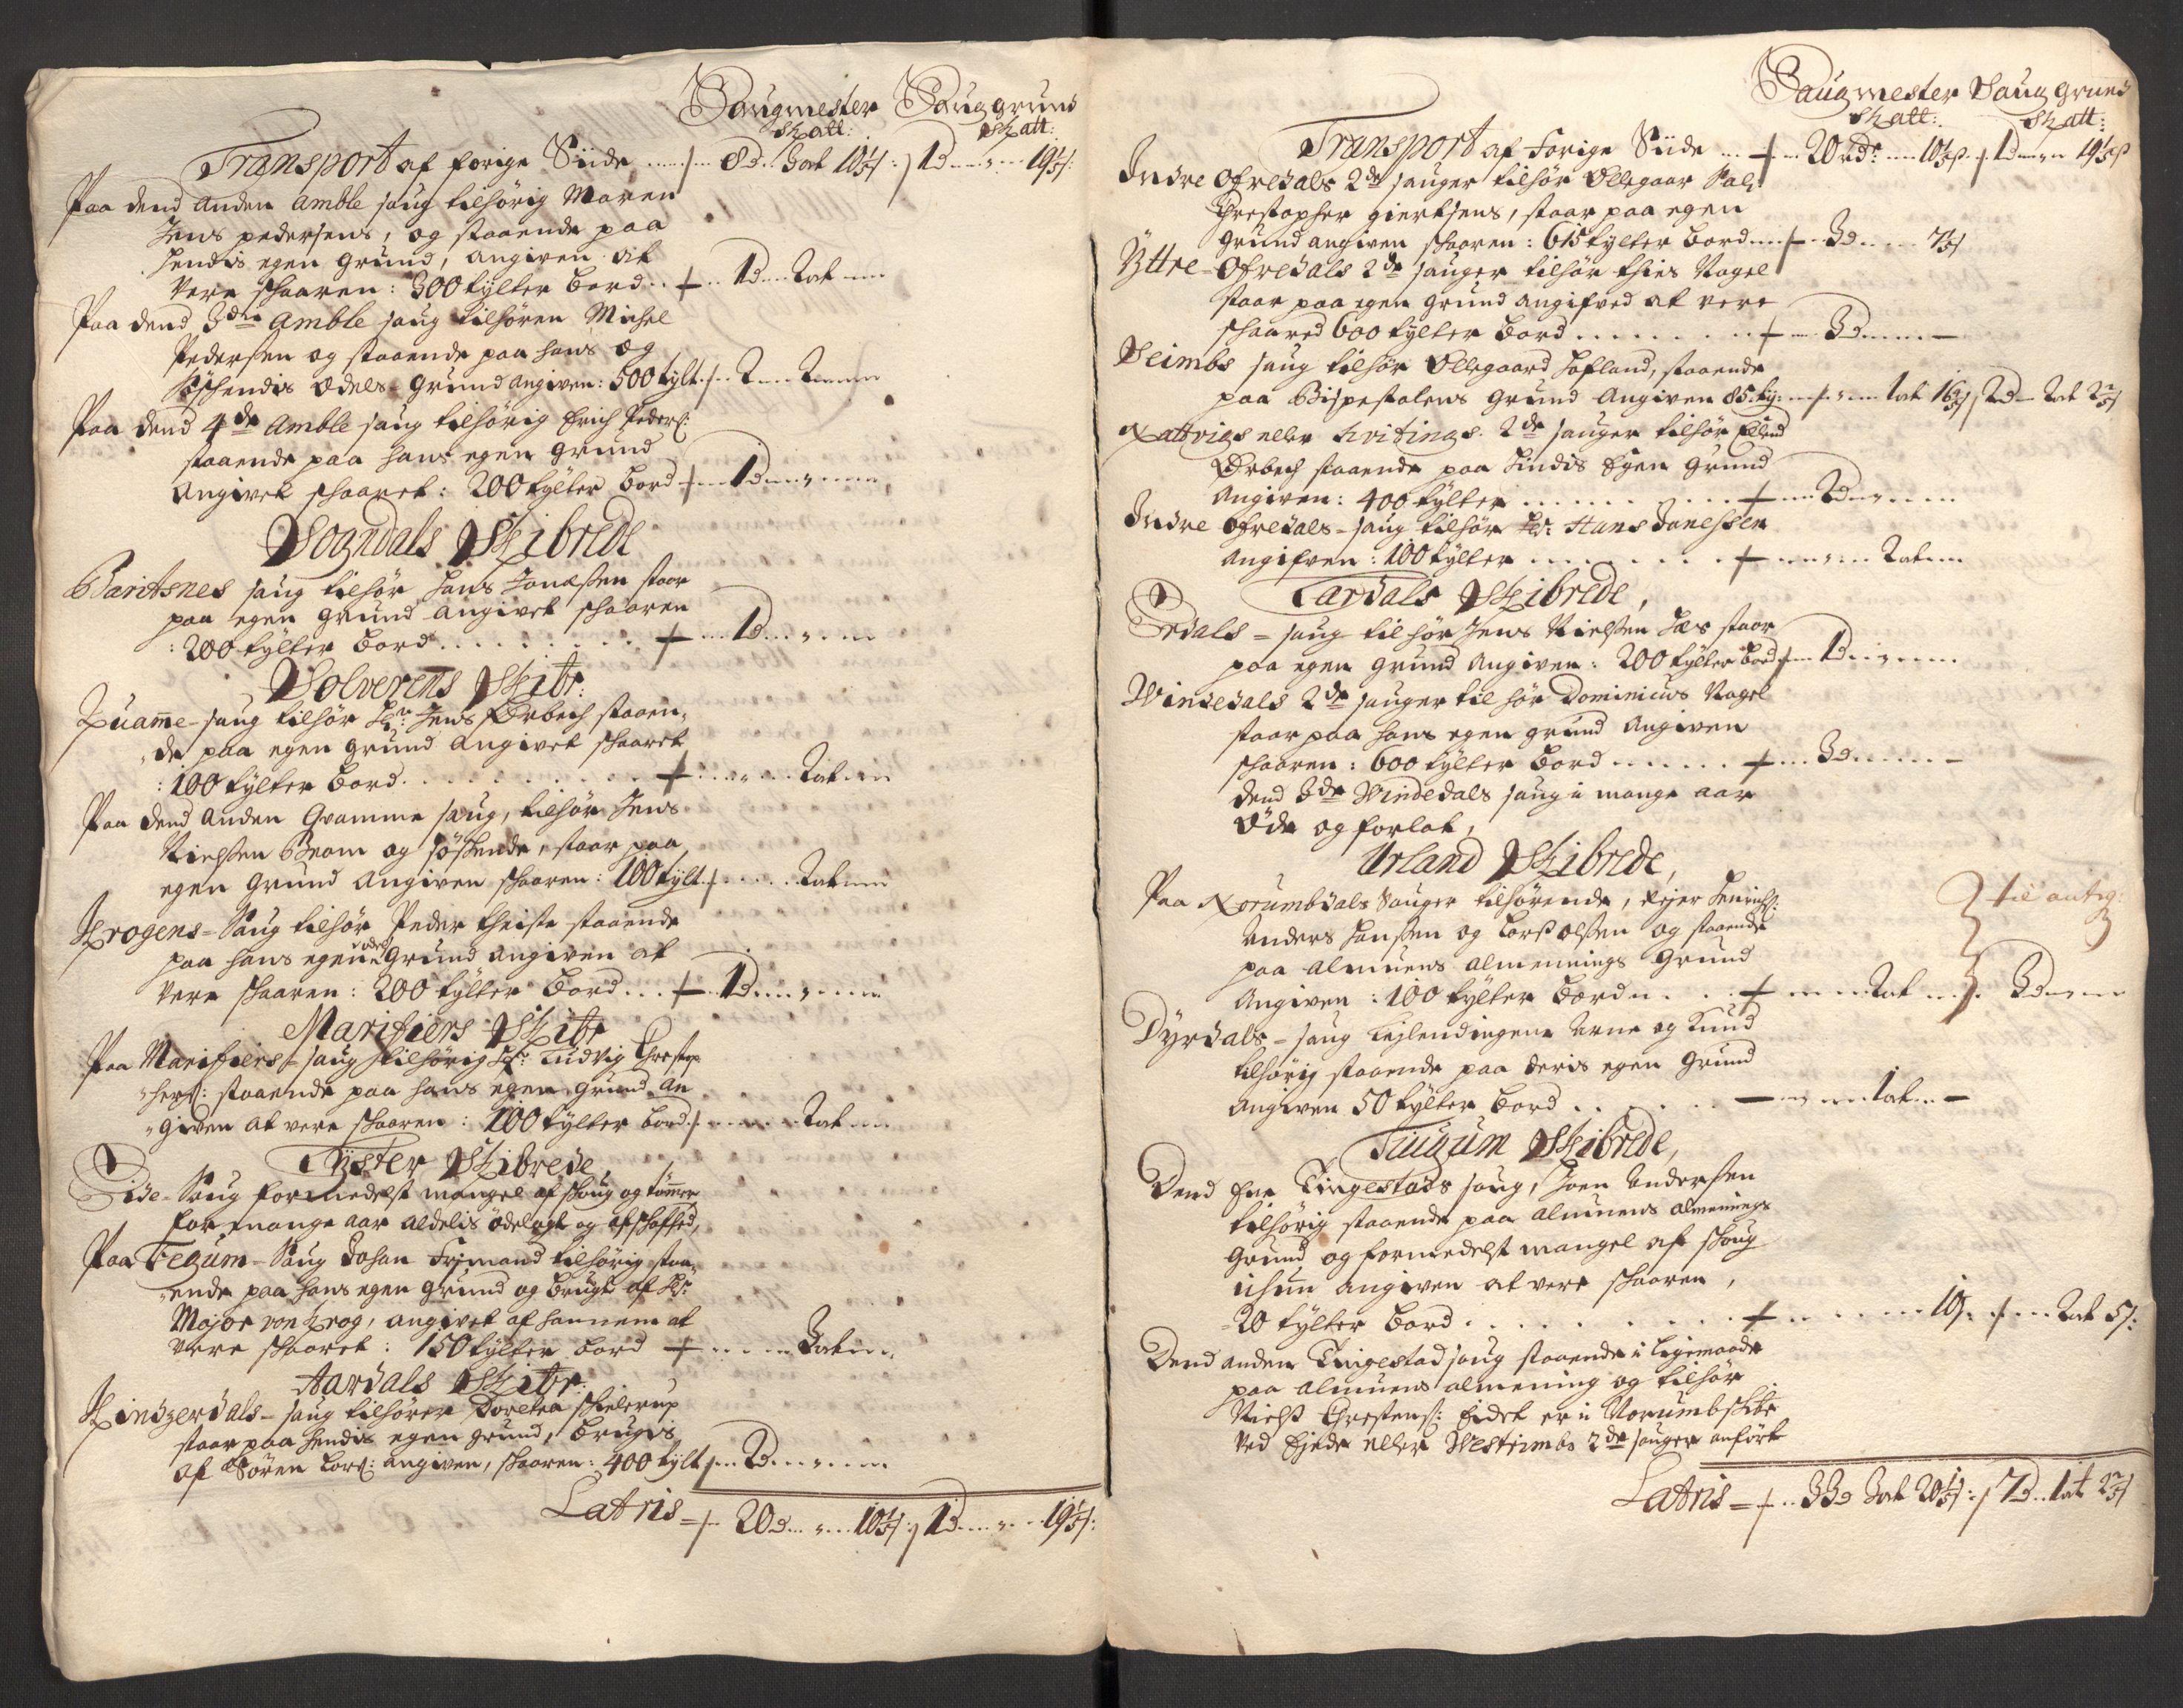 Saugmester Saug grund
skatt: skatt:
Transport af forige Siide 8d. 3ort 10⅕s: 1d 19⅕s:
Paa dend Anden Amble saug tilhörig Maren
Jens pedersens, og staaende paa
hendis egen Grund, angiven at
vere skaaren: 300 tylter bord 1d 2ort
Paa dend 3die Amble saug tilhören Michel
Pedersen og staaende paa hans og
Söskendis Odels-Grund angiven: 500 tylt 2 2
Paa dend 4de Amble saug tilhörig Erich Peders:
staaende paa hans egen grund
Angivet skaaret: 200 tylter bord 1d
Sogndals Skibrede
Baritsnes saug tilhör Hans Jonæssen staar
paa egen grund Angivet skaaren
: 200 tylter bord 1d
Solverens Skibr:
Quame-saug tilhör Hr: Jens Orbech staaen-
de paa egen grund Angivet skaaret
: 100 tylter bord 2ort
Paa dend Anden Qvamme saug, tilhör Jens
Nielssen Bram og söskende, staar paa
egen Grund Angiven skaaren: 100 tylt 2ort
Krogens-Saug tilhör Peder Theiste staaende
paa hans egen odels Grund angiven at
vere skaaren: 200 tylter bord 1d
Marifiers Skibr
Paa Marifiers-saug tilhörig Hr: Ludvig Christop-
hers: staaende paa hans egen grund An-
given at vere skaaren: 100 tylter bord 2ort
Lyster Skibrede,
Eide-Saug formedelst mangel af skoug og tömmer
for mange aar aldelis ödelagt og afskaffed,
Paa Fegum-Saug Johan Frimand tilhörig staa-
ende paa hans egen grund og brugt af Hr:
Major von Krog, angivet af hannem at
vere skaaret: 150 tylter bord 3ort
Aardals Skibr:
Hindzerdals-saug tilhörer Dorethea Skielerup
staar paa hendis egen grund, brugis
af Sören Lars: angiven, skaaren: 400 tylt 2d
Latris 20d 10⅕s: 1d 19⅕s:
Saugmester Saug grund
skatt: skatt:
Transport af Forige Siide 20rd 10⅕s 1d 19⅕s
Indre Ofredals 2de sauger tilhör Ollegaar Sal:
Christopher Giertsens, staar paa egen
Grund angiven skaaren: 615 tylter bord 3d 7⅕s
Yttre-Ofredals 2de sauger tilhör Thies Nagel
staar paa egen grund angifved at vere
skaared 600 tylter bord 3d
Seimbs saug tilhör Ollegaard Hofland, staaende
paa Bispestolens Grund Angiven 85 ty: 1ort 16⅘s 2d 2ort 2⅖s
Nattvigs eller Kvitings 2de sauger tilhör
Orbech staaende paa Sindis Egen Grund
Angiven: 400 tylter 2d
Indre Ofredals-saug tilhör Hr: Hans Jonessen
Angifven: 100 tylter 2ort
Lardals Skibrede,
Erdals-saug tilhör Jens Nielssen Læs staar
paa egen grund Angiven: 200 tylter bord 1d
Vindedals 2de sauger tilhör Dominicus Nagel
staar paa hans egen grund Angiven
skaaren: 600 tylter bord 3d
dend 3de Vindedals saug i mange aar
Öde og forlat,
Urland Skibrede,
Paa Norumbdals Sauger tilhörende, Ejer Henrichs:
Anders Hanssen og Lars olssen og staaende
paa Almuens almennings Grund
Angiven: 100 tylter bord 2ort 3d
til anteg:
Dyrdals-saug Leylendingene Arne og Knud
tilhörig staaende paa deris egen Grund
Angiven 50 tylter bord 1ort
Tuugum Skibrede,
Dend Ene Tingestads saug, Joen Andersen
tilhörig staaende paa Almuens almenings
Grund og formedelst mangel af skoug
angiven at vere skaaren,
20 tylter bord 10s: 2ort 5s:
Dend anden Tingestad saug staaende i Ligemaade
paa Almuens almening og tilhör
Nielss Christens: Eidet er i Norumbskibr:
ved Ejede eller Vestrimbs 2de sauger anfört
Latris 33d 3ort 20⅕s: 7d 1ort 2⅖s